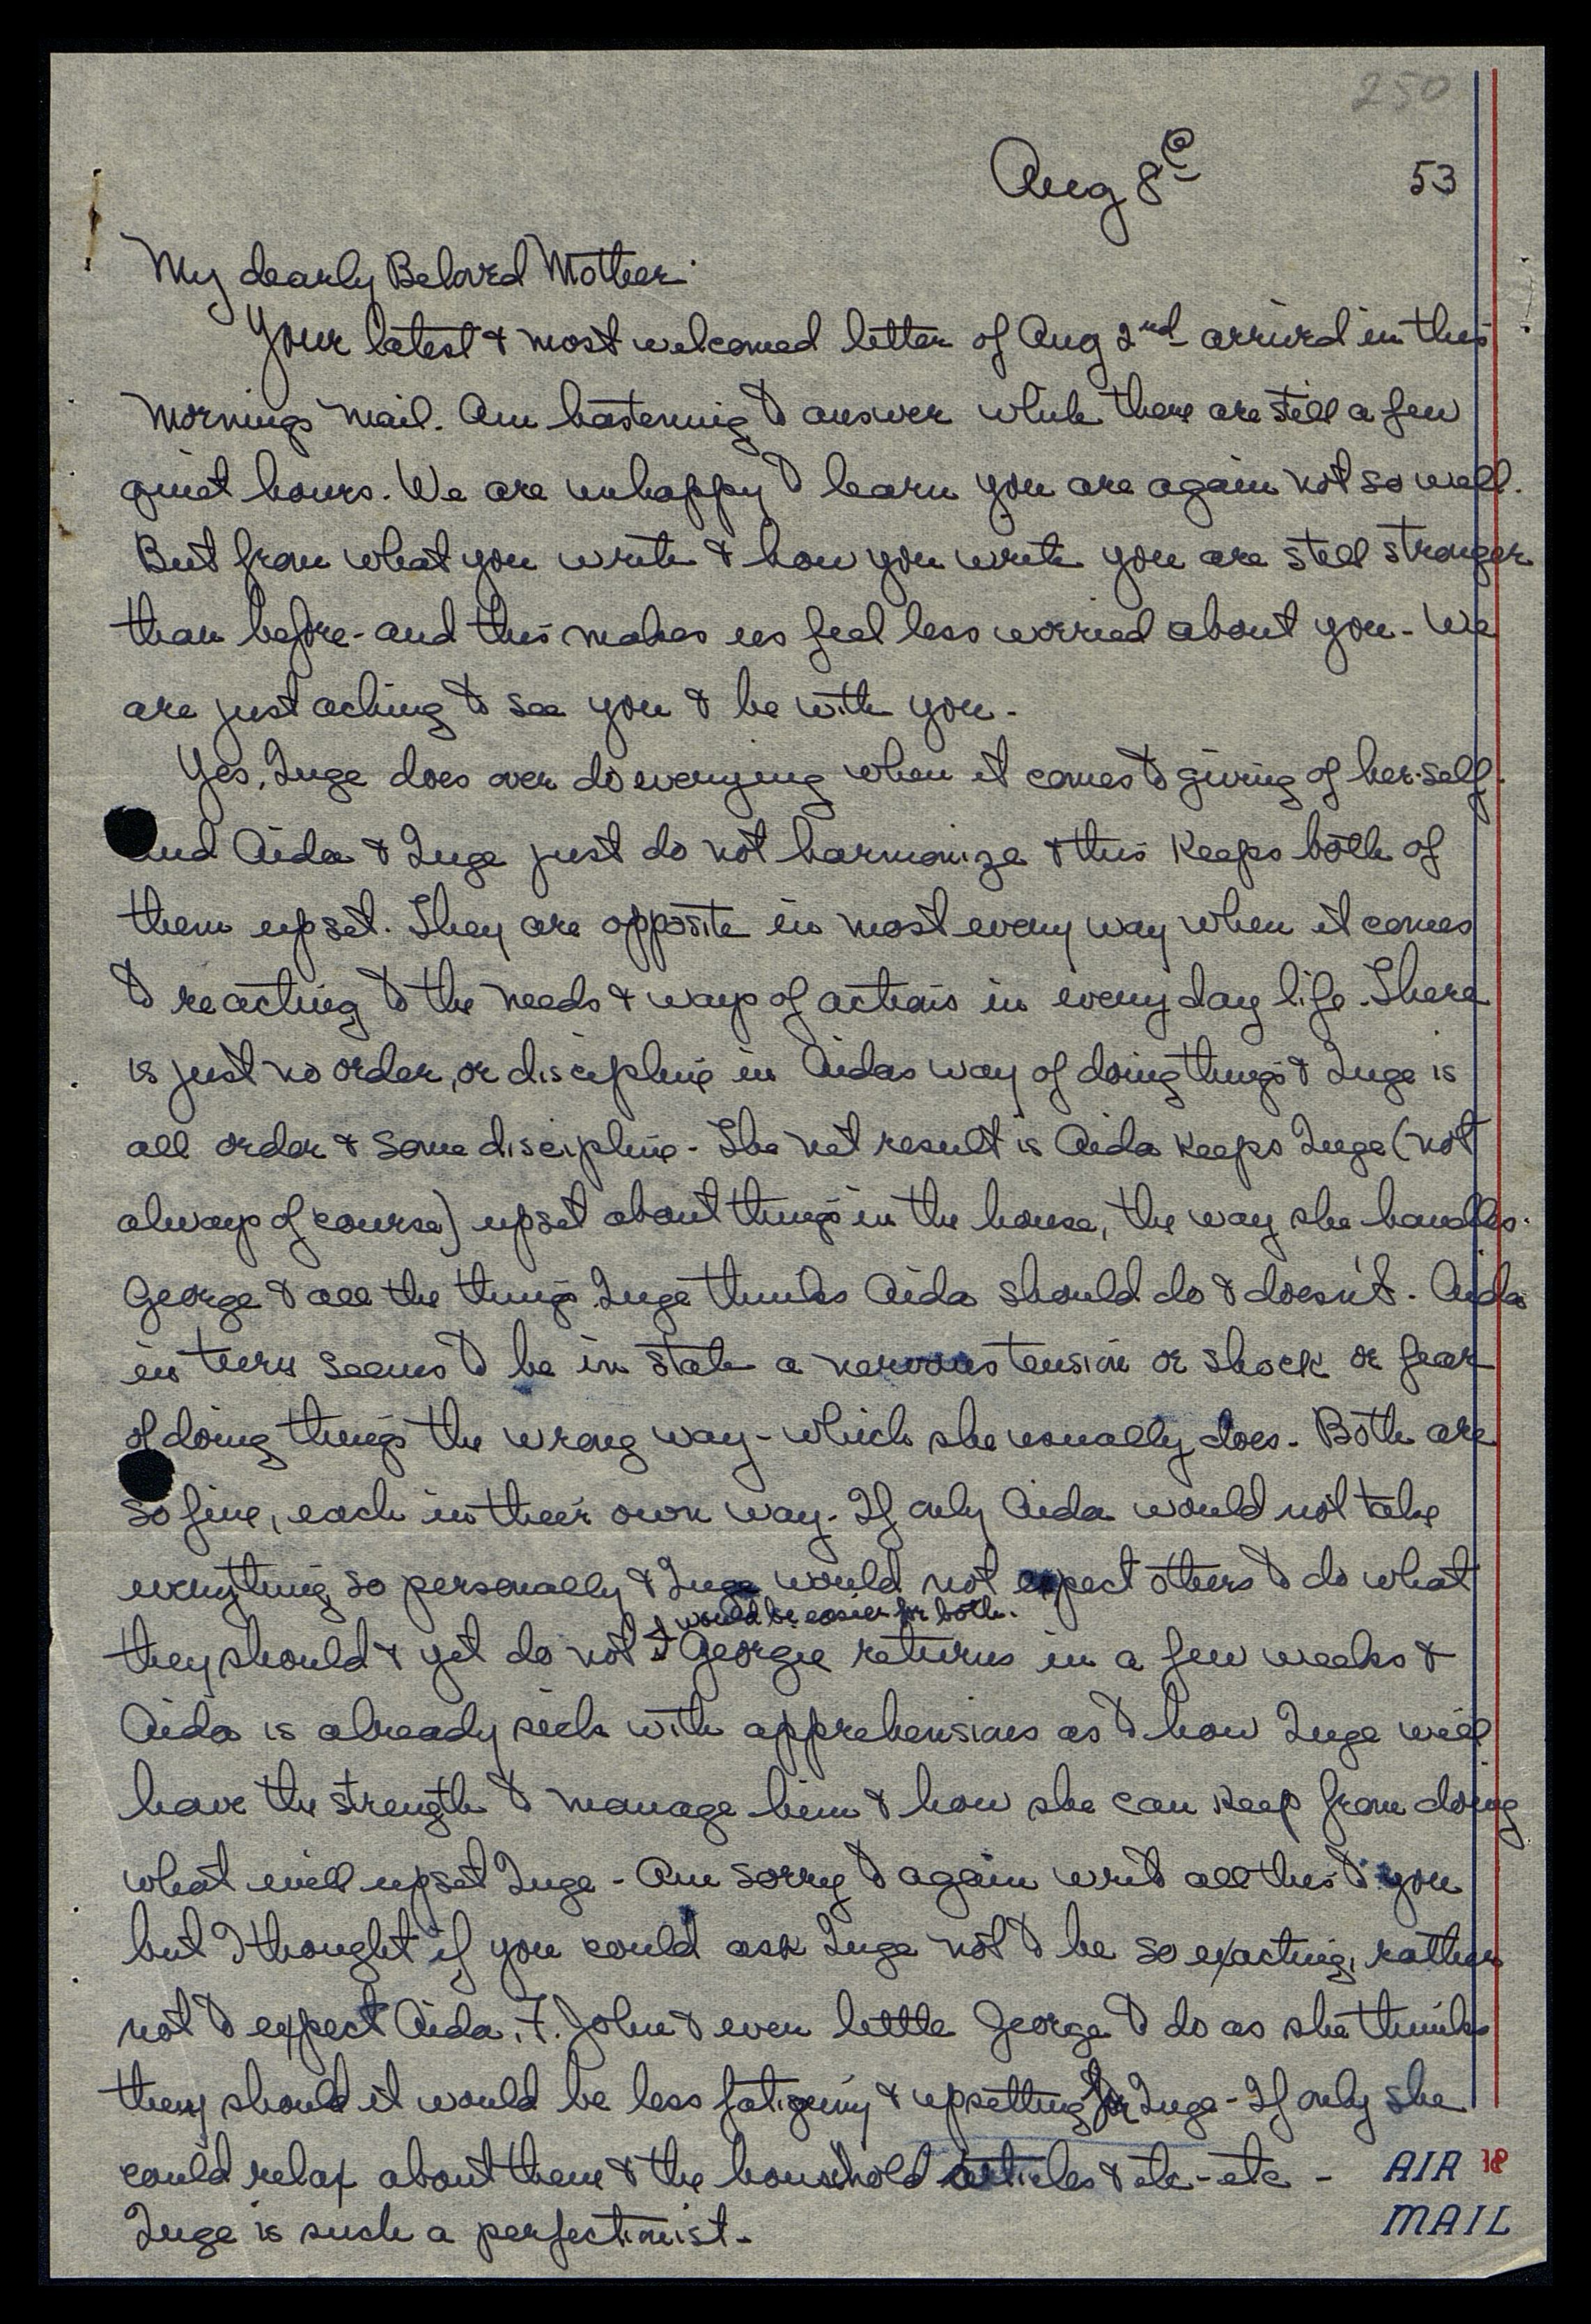 250
Aug 8th 53
My dearly Beloved Mother
Your latest & most welcomed letter of Aug 2nd arrived in this
mornings mail. Am hastening to answer while there are still a few
quiet hours. We are unhappy to learn you are again not so well.
But from what you write & how you write you are still stronger
than before - and this makes us feel less worried about you - We
are just aching to see you & be with you -
Yes, Inge does over do everying when it comes to giving of her-self.
And Aida & Inge just do not harmonize & this keeps both of
them upset. They are opposite in most every way when it comes
to reacting to the needs & ways of actions in every day life. There
is just no order, or discipline in Aidas way of doing things & Inge is
all order & some discipline - The net result is Aida keeps Inge (not
always of course) upset about things in the house, the way she handles
George & all the things Inge thinks Aida should do & doesn't. Aida
in turn seems to be in state a nervous tension or shock or fear
of doing things the wrong way - which she usually does. Both are
so fine, each in their own way. If only Aida would not take
everything so personally & Inge would not expect others to do what
it would be easier for both.
they should & yet do not Georgie returns in a few weeks &
Aida is already sick with apprehensions as to how Inge will
have the strength to manage him & how she can keep from doing
what will upset Inge - Am sorry to again write all this to you
but I thought if you could ask Inge not to be so exacting, rather
not to expect Aida, F. John & even little George to do as she thinks
they should it would be less fatiguing & upsetting for Inge - If only she
could relax about them & the household articles & etc - etc -
Inge is such a perfectionist.
AIR 18
MAIL